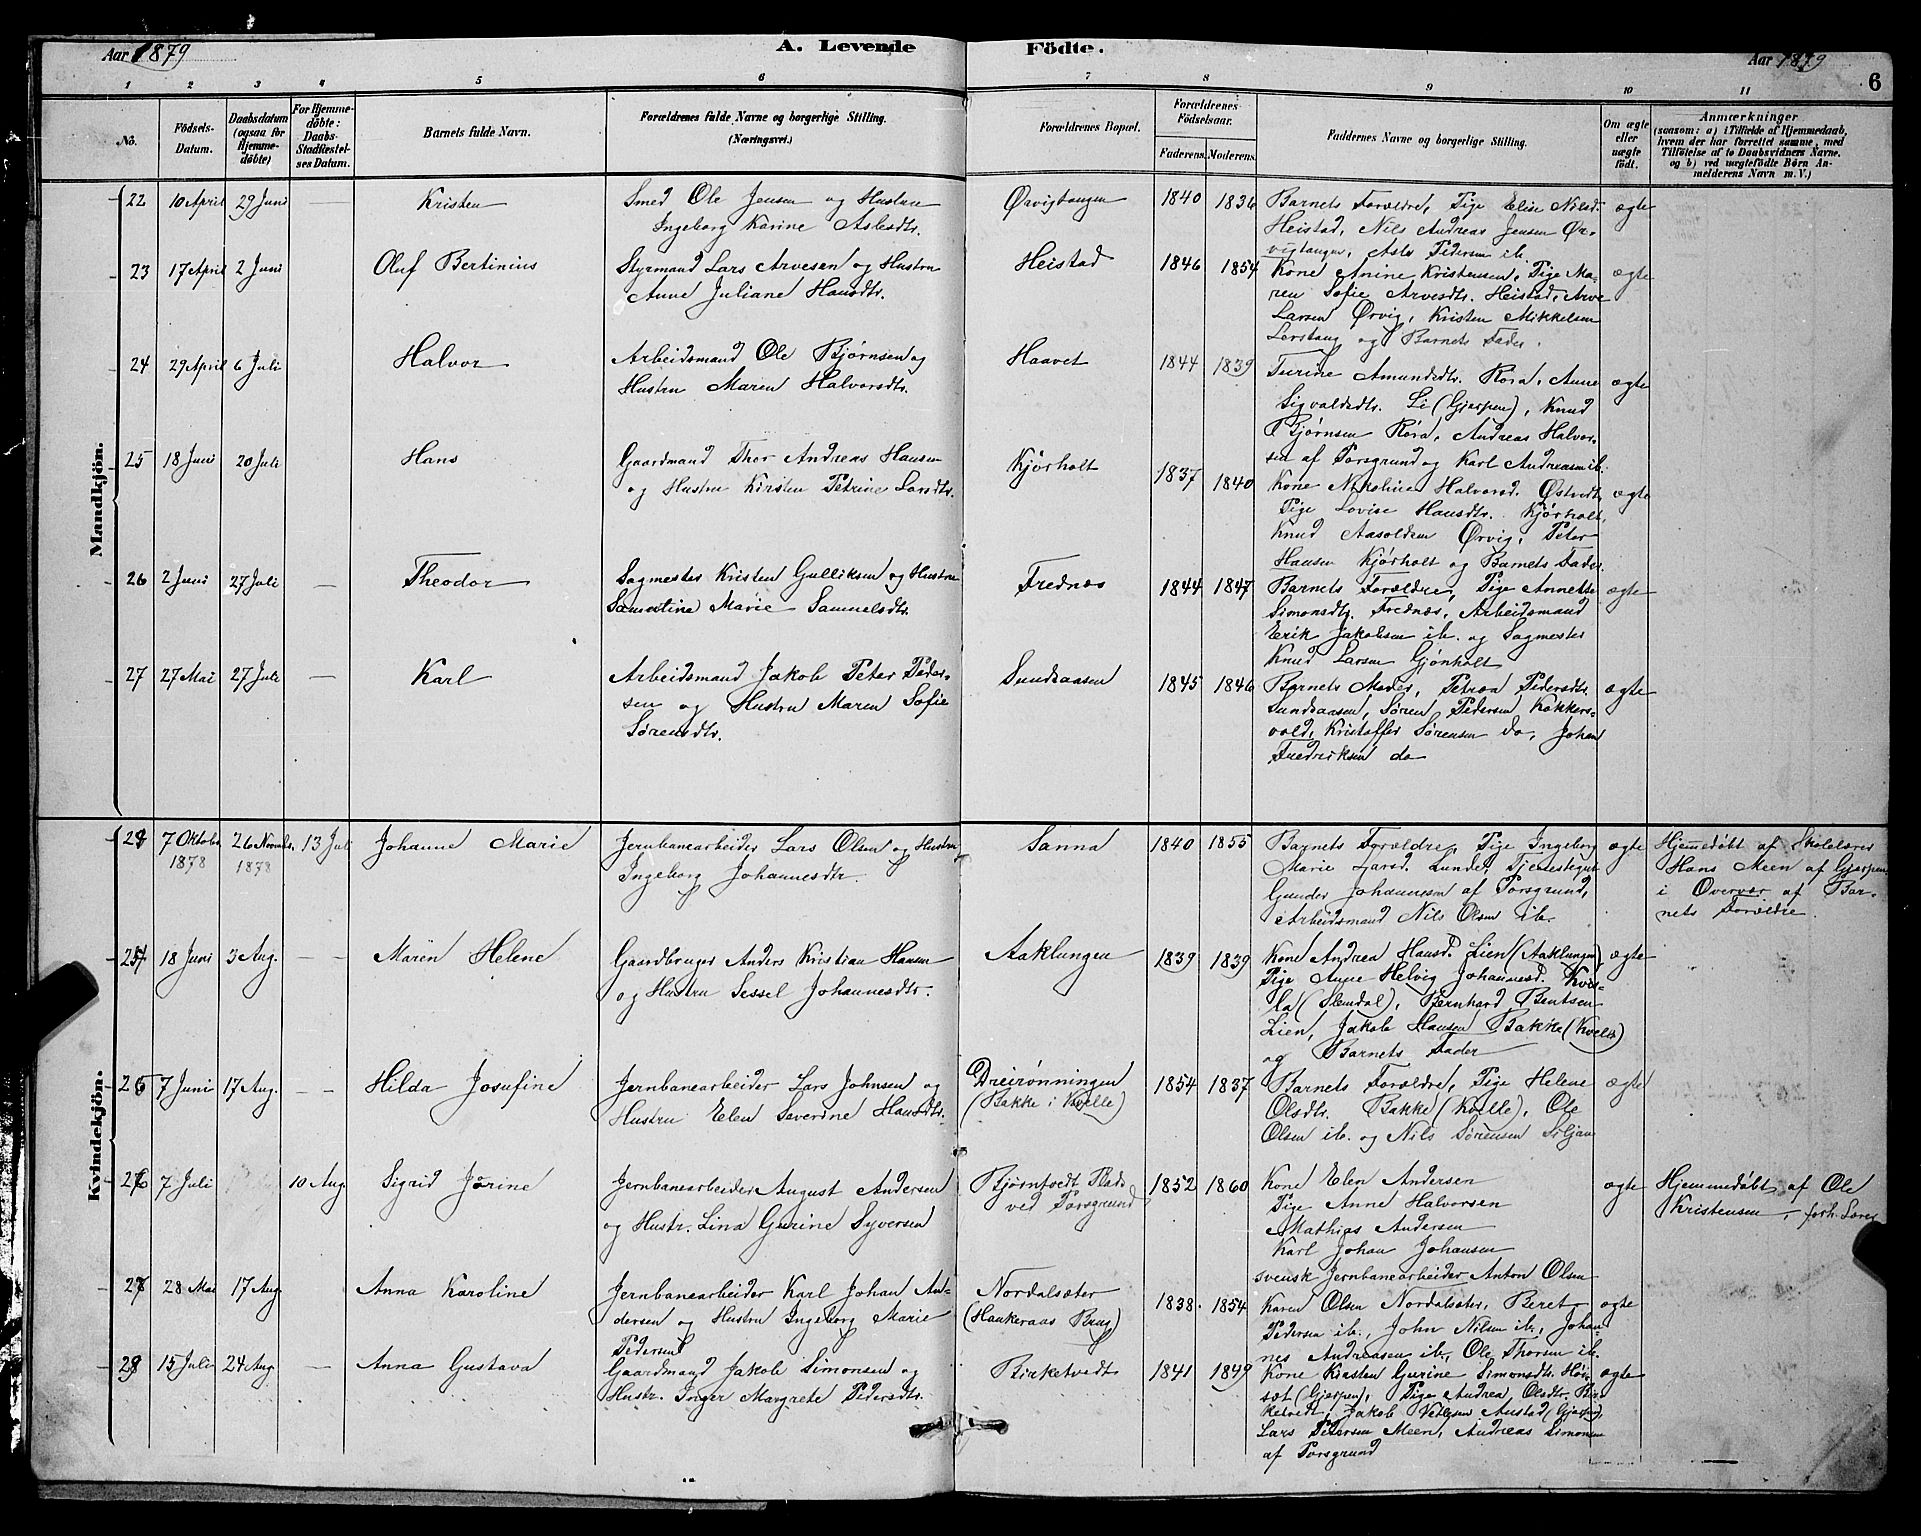 Aar 1879
A. Levende
Födte.
Aar 1879
6
1 2 3 4 5 6 7 8 9 10 11
No.
Födsels-
Datum.
Daabsdatum
(ogsaa for
Hjemme-
døbte)
For Hjemme-
døbte:
Daabs-
Stadfæstel-
ses Datum.
Barnets fulde Navn.
Forældrenes fulde Navne og borgerlige Stilling.
(Næringsvei.)
Forældrenes Bopæl.
Forældrenes
Födselsaar.
Faderens. Moderens.
Faddernes Navne og borgerlige Stilling.
Om ægte
eller
uægte
födt.
Anmærkninger
(saasom: a) i Tilfælde af Hjemmedaab,
hvem der har forrettet samme, med
Tilföielse af to Daabsvidners Navne.
og b) ved uægtefödte Börn An-
melderens Navn m. V.)
Mandkjön.
22 10 April 29 Juni — Kristen
Smed Ole Jensen og Hustru
Ingeborg Karine Aslesdtr.
Ørvigtangen 1840 1836
Barnets Forældre, Pige Elise Nilsd.
Heistad, Nils Andreas Jensen Ør-
vigtangen, Asle Pedersen ib.
ægte
23 17 April 2 Juni Oluf Bertinius
Styrmand Lars Arvesen og Hustru
Anne Juliane Hansdtr.
Heistad 1846 1854
Kone Anine Kristensen, Pige Ma-
ren Sofie Arvesdtr. Heistad, Arve
Larsen Ørvig, Kristen Mikkelsen
Lerstang og Barnets Fader.
ægte
24 29 April 6 Juli Halvor
Arbeidsmand Ole Bjørnsen og
Hustru Maren Halvorsdtr.
Haavet 1844 1839
Turine Amundsdtr. Rora, Anne
Sigvaldsdtr. Li (Gjerpen), Knud
Bjørnsen Rora, Andreas Halvor-
sen af Porsgrund og Karl Andreasen ib.
ægte
25 18 Juni 20 Juli Hans
Gaardmand Thor Andreas Hansen
og Hustru Kirsten Petrine Larsdtr.
Kjørholt 1837 1840
Kone Nikoline Halvorsd. Østvedt,
Pige Lovise Hansdtr. Kjørholt,
Knud Aasoldsen Ørvig, Peter
Hansen Kjørholt og Barnets Fader.
ægte
26 2 Juni 27 Juli — Theodor
Sagmester Kristen Gulliksen og Hustru
Samertine Marie Samuelsdtr.
Frednæs 1844 1847
Barnets Forældre, Pige Annette
Simonsdtr. Frednæs, Arbeidsmand
Erik Jakobsen ib. og Sagmester
Knud Larsen Gjónholt
ægte
27 27 Mai 27 Juli — Karl
Arbeidsmand Jakob Peter Peder-
sen og Hustru Maren Sofie
Sørensdtr.
Sundsaasen 1845 1846
Barnets Moder, Petrea Pedersdtr.
Sundsaasen, Søren Pedersen Kokkers-
vold, Kristoffer Sørensen do, Johan
Fredriksen do
ægte
Kvindekjön.
7 Oktober 26 Novemb. 13 Juli Johanne Marie
1878 1878
Jernbanearbeider Lars Olsen og Hustru
Ingeborg Johannesdtr.
Sanna 1840 1855
Barnets Forældre, Pige Ingeborg
Marie Larsd. Lunde, Tjenestegut
Gunder Johannesen af Porsgrund,
Arbeidsmand Nils Olsen ib.
ægte
Hjemmedøbt af Skolelærer
Hans Meen af Gjerpen
i Overvær af Bar-
nets Forældre.
18 Juni 3 Aug. — — Maren Helene
Gaardbruger Anders Kristian Hansen
og Hustru Sessel Johannesdtr.
Aaklungen 1839 1839
Kone Andrea Hansd. Lien (Aaklungen)
Pige Anne Helvig Johannesd. Kvis-
la (Slemdal), Bernhard Bentsen
Lien, Jakob Hansen Bakke (Kvelle)
og Barnets Fader
ægte
7 Juni 17 Aug. — — Hilda Josefine
Jernbanearbeider Lars Johnsen og
Hustru Elen Severine Hansdtr.
Dreirønningen
(Bakke i Kvelle)
1854 1837
Barnets Forældre, Pige Helene
Olsdtr. Bakke (Kvelle), Ole
Olsen ib. og Nils Sørensen Siljan
ægte
7 Juli 10 Aug. Sigrid Jørine
Jernbanearbeider August Andersen
og Hustr. Lina Gurine Syversen
Bjørntvedt Plads
ved Porsgrund
1852 1860
Kone Elen Andersen
Pige Anne Halvorsen
Mathias Andersen
Karl Johan Johansen
ægte
Hjemmedøbt af Ole
Kristensen, forh. Lærer
28 Mai 17 Aug. Anna Karoline
Jernbanearbeider Karl Johan An-
dersen og Hustru Ingeborg Marie
Pedersen
Nordalsæter
(Haukeraas Brug)
1838 1854
svensk Jernbanearbeider Anton Olsen
Karen Olsen Nordalsæter, Beret
Pedersen ib., John Nilsen ib., Johan-
nes Andreasen ib., Ole Thorsen ib.
ægte
15 Juli 24 Aug. — Anna Gustava
Gaardmand Jakob Simonsen og
Hustr. Inger Margrete Pedersdtr.
Birketvedt 1841 1849
Kone Kirsten Gurine Simonsdtr. Høi-
sæt (Gjerpen), Pige Andrea Olsdtr. Bir-
ketvedt, Jakob Vetlesen Austad (Gjerpen),
Lars Pedersen Meen, Andreas Simonsen
af Porsgrund
ægte